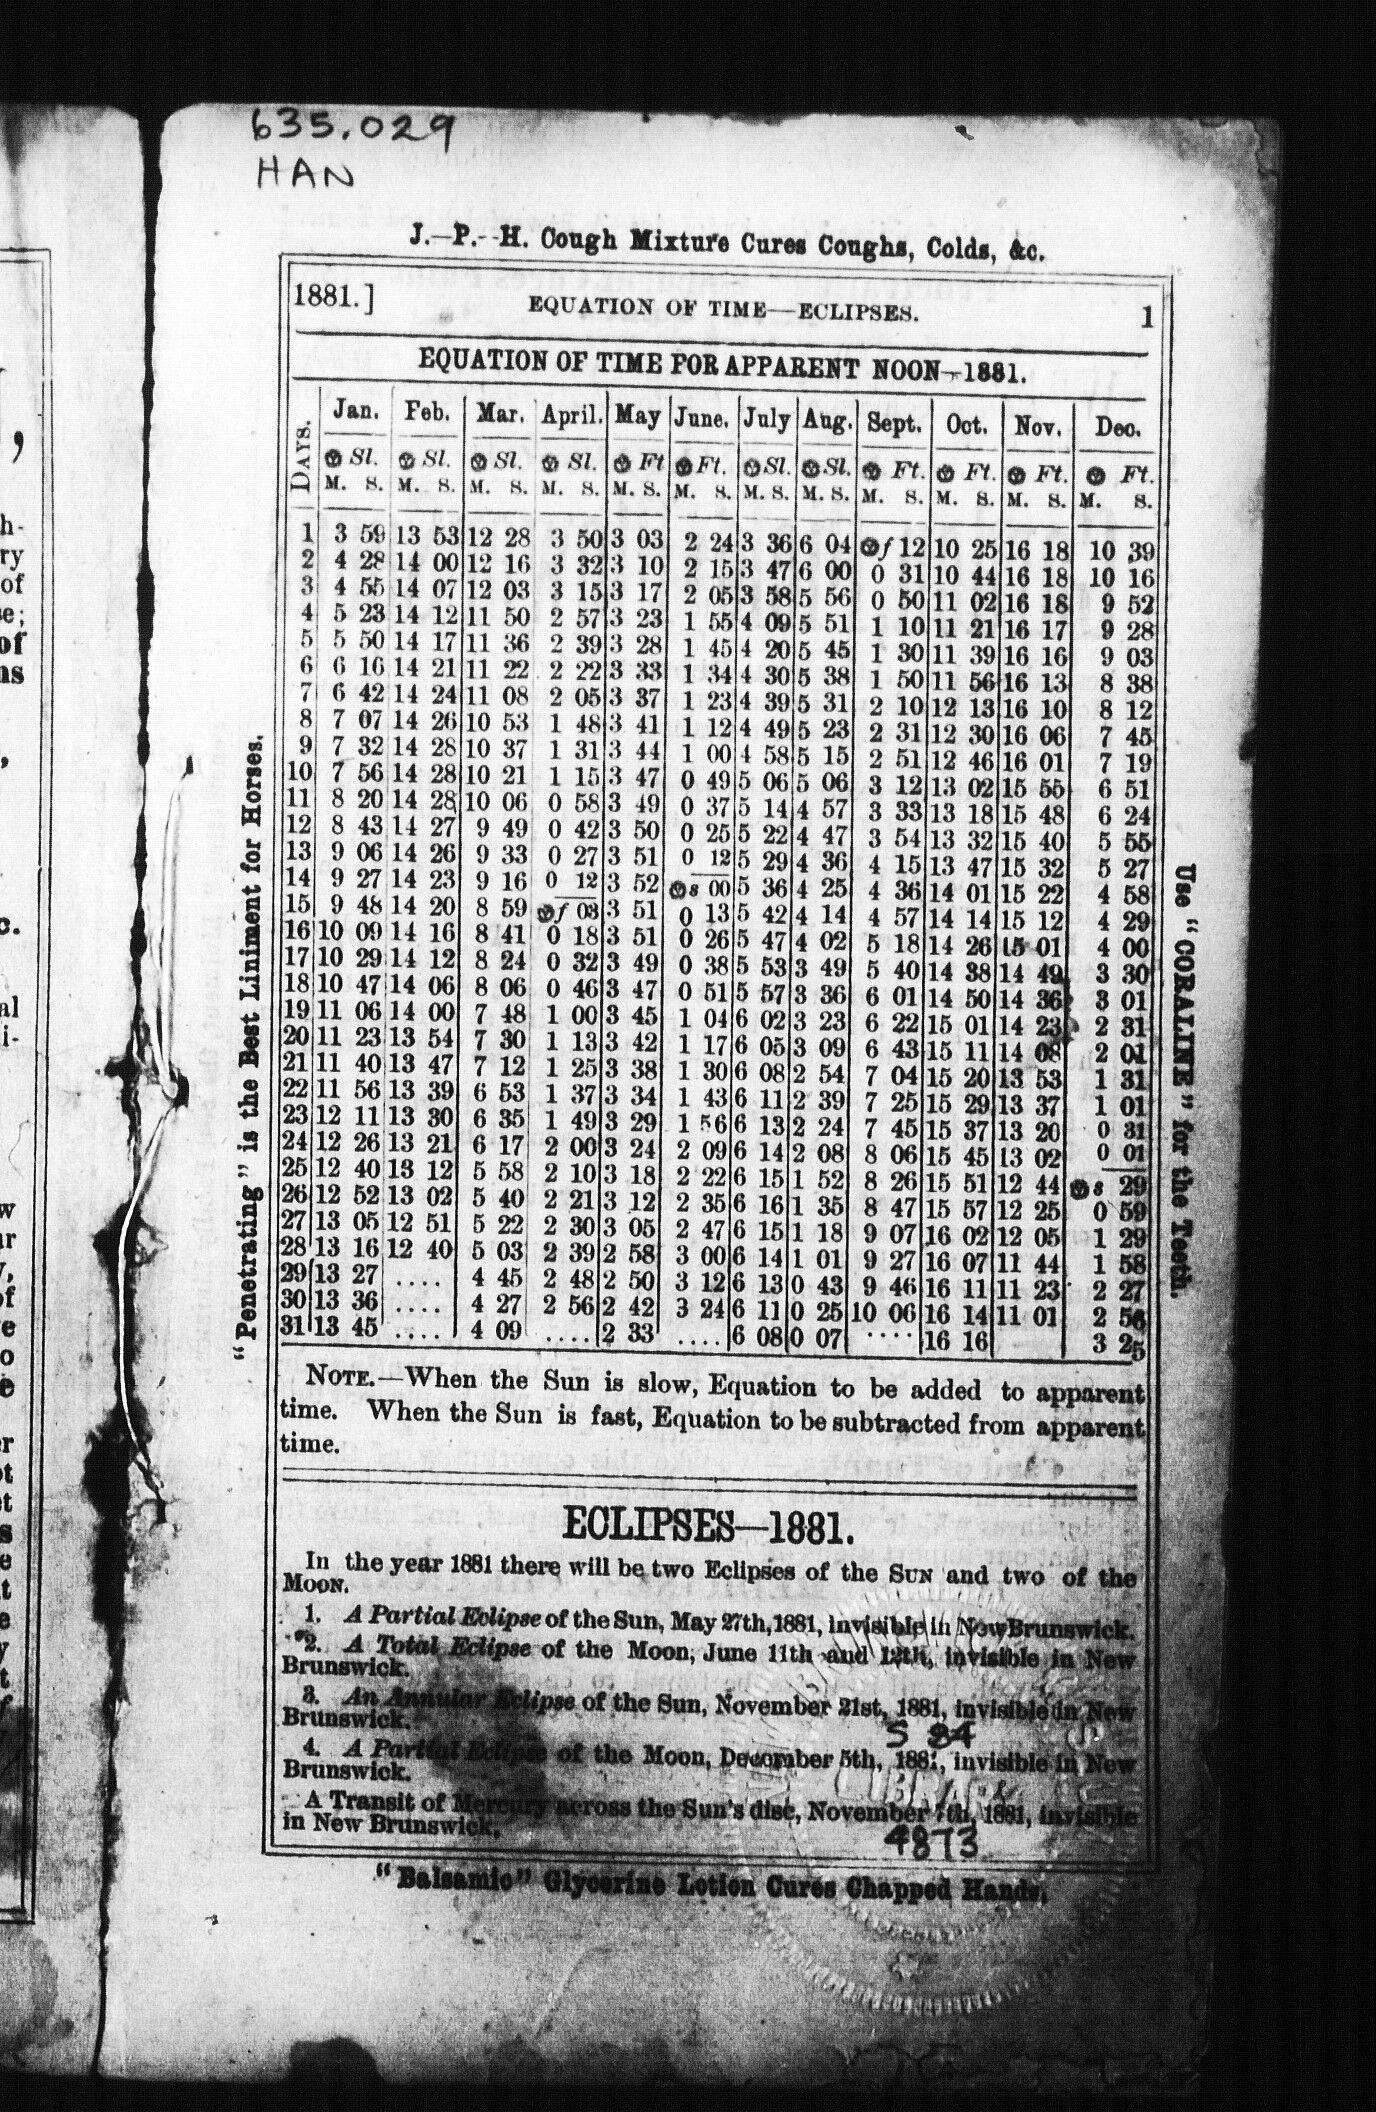 635.029
HAN
J.-P.-H. Cough Mixture Cures Coughs, Colds, &c.
1881.] EQUATION OF TIME—ECLIPSES. 1
EQUATION OF TIME FOR APPARENT NOON—1881.
DAYS. Jan. Feb. Mar. April. May June. July Aug. Sept. Oct. Nov. Dec.
Sl. Sl. Sl. Sl. Ft Ft. Sl. Sl. Ft. Ft. Ft. Ft.
M. S. M. S. M. S. M. S. M. S. M. S. M. S. M. S. M. S. M. S. M. S. M. S.
1 3 59 13 53 12 28 3 50 3 03 2 24 3 36 6 04 f 12 10 25 16 18 10 39
2 4 28 14 00 12 16 3 32 3 10 2 15 3 47 6 00 0 31 10 44 16 18 10 16
3 4 55 14 07 12 03 3 15 3 17 2 05 3 58 5 56 0 50 11 02 16 18 9 52
4 5 23 14 12 11 50 2 57 3 23 1 55 4 09 5 51 1 10 11 21 16 17 9 28
5 5 50 14 17 11 36 2 39 3 28 1 45 4 20 5 45 1 30 11 39 16 16 9 03
6 6 16 14 21 11 22 2 22 3 33 1 34 4 30 5 38 1 50 11 56 16 13 8 38
7 6 42 14 24 11 08 2 05 3 37 1 23 4 39 5 31 2 10 12 13 16 10 8 12
8 7 07 14 26 10 53 1 48 3 41 1 12 4 49 5 23 2 31 12 30 16 06 7 45
9 7 32 14 28 10 37 1 31 3 44 1 00 4 58 5 15 2 51 12 46 16 01 7 19
10 7 56 14 28 10 21 1 15 3 47 0 49 5 06 5 06 3 12 13 02 15 55 6 51
11 8 20 14 28 10 06 0 58 3 49 0 37 5 14 4 57 3 33 13 18 15 48 6 24
12 8 43 14 27 9 49 0 42 3 50 0 25 5 22 4 47 3 54 13 32 15 40 5 55
13 9 06 14 26 9 33 0 27 3 51 0 12 5 29 4 36 4 15 13 47 15 32 5 27
14 9 27 14 23 9 16 0 12 3 52 s 00 5 36 4 25 4 36 14 01 15 22 4 58
15 9 48 14 20 8 59 f 03 3 51 0 13 5 42 4 14 4 57 14 14 15 12 4 29
16 10 09 14 16 8 41 0 18 3 51 0 26 5 47 4 02 5 18 14 26 15 01 4 00
17 10 29 14 12 8 24 0 32 3 49 0 38 5 53 3 49 5 40 14 38 14 49 3 30
18 10 47 14 06 8 06 0 46 3 47 0 51 5 57 3 36 6 01 14 50 14 36 3 01
19 11 06 14 00 7 48 1 00 3 45 1 04 6 02 3 23 6 22 15 01 14 23 2 31
20 11 23 13 54 7 30 1 13 3 42 1 17 6 05 3 09 6 43 15 11 14 08 2 01
21 11 40 13 47 7 12 1 25 3 38 1 30 6 08 2 54 7 04 15 20 13 53 1 31
22 11 56 13 39 6 53 1 37 3 34 1 43 6 11 2 39 7 25 15 29 13 37 1 01
23 12 11 13 30 6 35 1 49 3 29 1 56 6 13 2 24 7 45 15 37 13 20 0 31
24 12 26 13 21 6 17 2 00 3 24 2 09 6 14 2 08 8 06 15 45 13 02 0 01
25 12 40 13 12 5 58 2 10 3 18 2 22 6 15 1 52 8 26 15 51 12 44 s 29
26 12 52 13 02 5 40 2 21 3 12 2 35 6 16 1 35 8 47 15 57 12 25 0 59
27 13 05 12 51 5 22 2 30 3 05 2 47 6 15 1 18 9 07 16 02 12 05 1 29
28 13 16 12 40 5 03 2 39 2 58 3 00 6 14 1 01 9 27 16 07 11 44 1 58
29 13 27 .... 4 45 2 48 2 50 3 12 6 13 0 43 9 46 16 11 11 23 2 27
30 13 36 .... 4 27 2 56 2 42 3 24 6 11 0 25 10 06 16 14 11 01 2 56
31 13 45 .... 4 09 .... 2 33 .... 6 08 0 07 .... 16 16 3 25
NOTE.—When the Sun is slow, Equation to be added to apparent
time. When the Sun is fast, Equation to be subtracted from apparent
time.
ECLIPSES—1881.
In the year 1881 there will be two Eclipses of the SUN and two of the
MOON.
1. A Partial Eclipse of the Sun, May 27th, 1881, invisible in New Brunswick.
2. A Total Eclipse of the Moon, June 11th and 12th, invisible in New
Brunswick.
3. An Annular Eclipse of the Sun, November 21st, 1881, invisible in New
Brunswick.
S 84
4. A Partial Eclipse of the Moon, December 5th, 1881, invisible in New
Brunswick.
A Transit of Mercury across the Sun's disc, November 7th, 1881, invisible
in New Brunswick.
4873
"Balsamic" Glycerine Lotion Cures Chapped Hands.
"Penetrating" is the Best Liniment for Horses.
Use "CORALINE" for the Teeth.